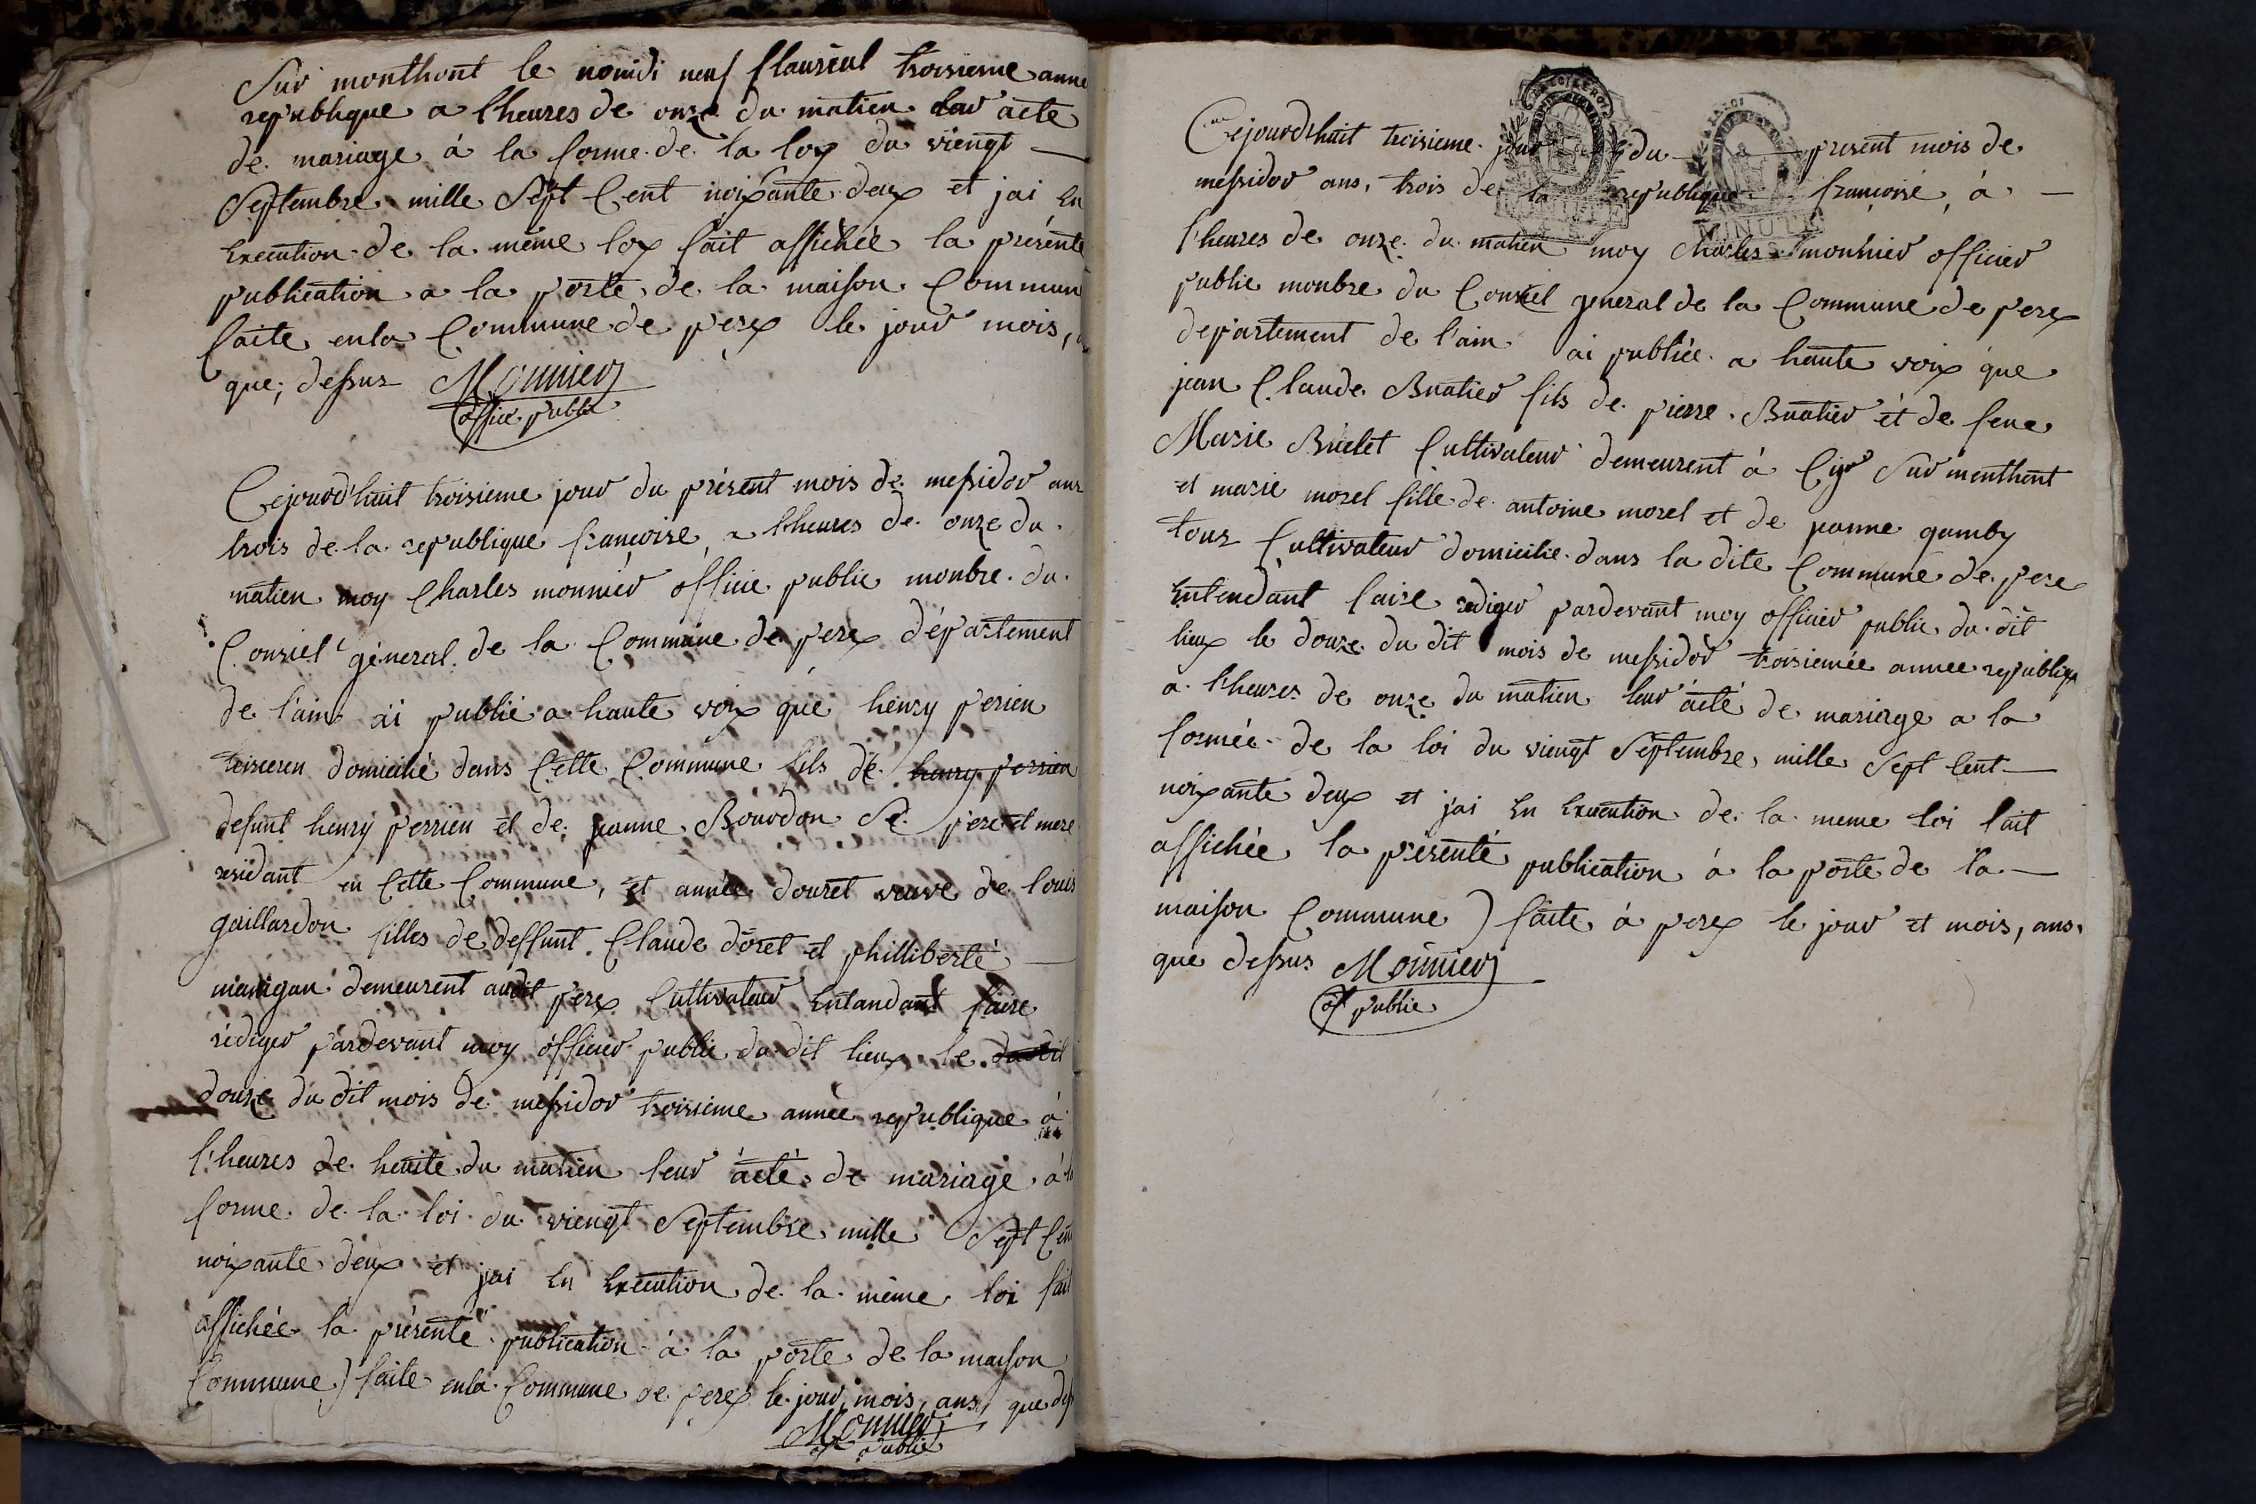 Sur monthont le nonidi neuf flaureal troisieme anne
republique a lheures de onze du matien leur acte
de mariage à la forme de la loy du viengt
Septembre mille Sept Cent noixante deux et jai En
Execution de la même loy fait affichée la présente
publication a la porte de la maison Commun
faite en la Commune de perex le jour mois,
que, dessus Monnier
officie public
Cejourd'huit troisieme jour du présent mois de messidor ans
trois de la republique françoise, a lheures de onze du
matien moy Charles monnier officie public monbre du
Consiel géneral de la Commune de perex département
de l'ain ai publié a haute voix que henry perien
domicilié dans Cette Commune fils de henry perrien
defunt henry perrien et de jeanne Bourdon Se pere et mere
residant en Cette Commune, et année douret veuve de louis
gaillardon filles de deffunt Claude doret et philliberté
manigan demeurent audit perex Cultivateur Entandant faire
rédiger pardevant moy officier public du dit lieux le du dit
douze du dit mois de messidor troisieme année republique à
l'heures de heuite du matien leur acté de mariage à la
forme de la loi du viengt Septembre mille Sept Cent
noixante deux et jai En Execution de la même loi fait
affichée la présente publication à la porte de la maison
Commune) faite en la Commune de perex le jour, mois, ans, que dess
Monnier
of public
Cejourd'huit troisieme jour du present mois de
messidor ans, trois de la republique françoise, à
l'heures de onze du matien moy Charles monnier officier
public monbre du Consiel general de la Commune de perex
departement de l'ain ai publiée a haute voix que
jean Claude Buatier fils de pierre Buatier et de feue
Marie Brulet Cultivateur demeurent à Cijr Sur menthont
et marie morel fille de antoine morel et de jeanne gamby
tous Cultivateur domicilie dans la dite Commune de perex
Entendant faire rediger pardevant moy officier public du dit
lieux le douze du dit mois de messidor troisiemée année republique
a l'heures de onze du matien leur acté de mariage a la
formée de la loi du viengt Septembre, mille Sept Cent
noixante deux et j'ai En Execution de la meme loi fait
affichée la présenté publication à la porte de la
maison Commune) faite à perex le jour et mois, ans,
que dessus Monnier
of public